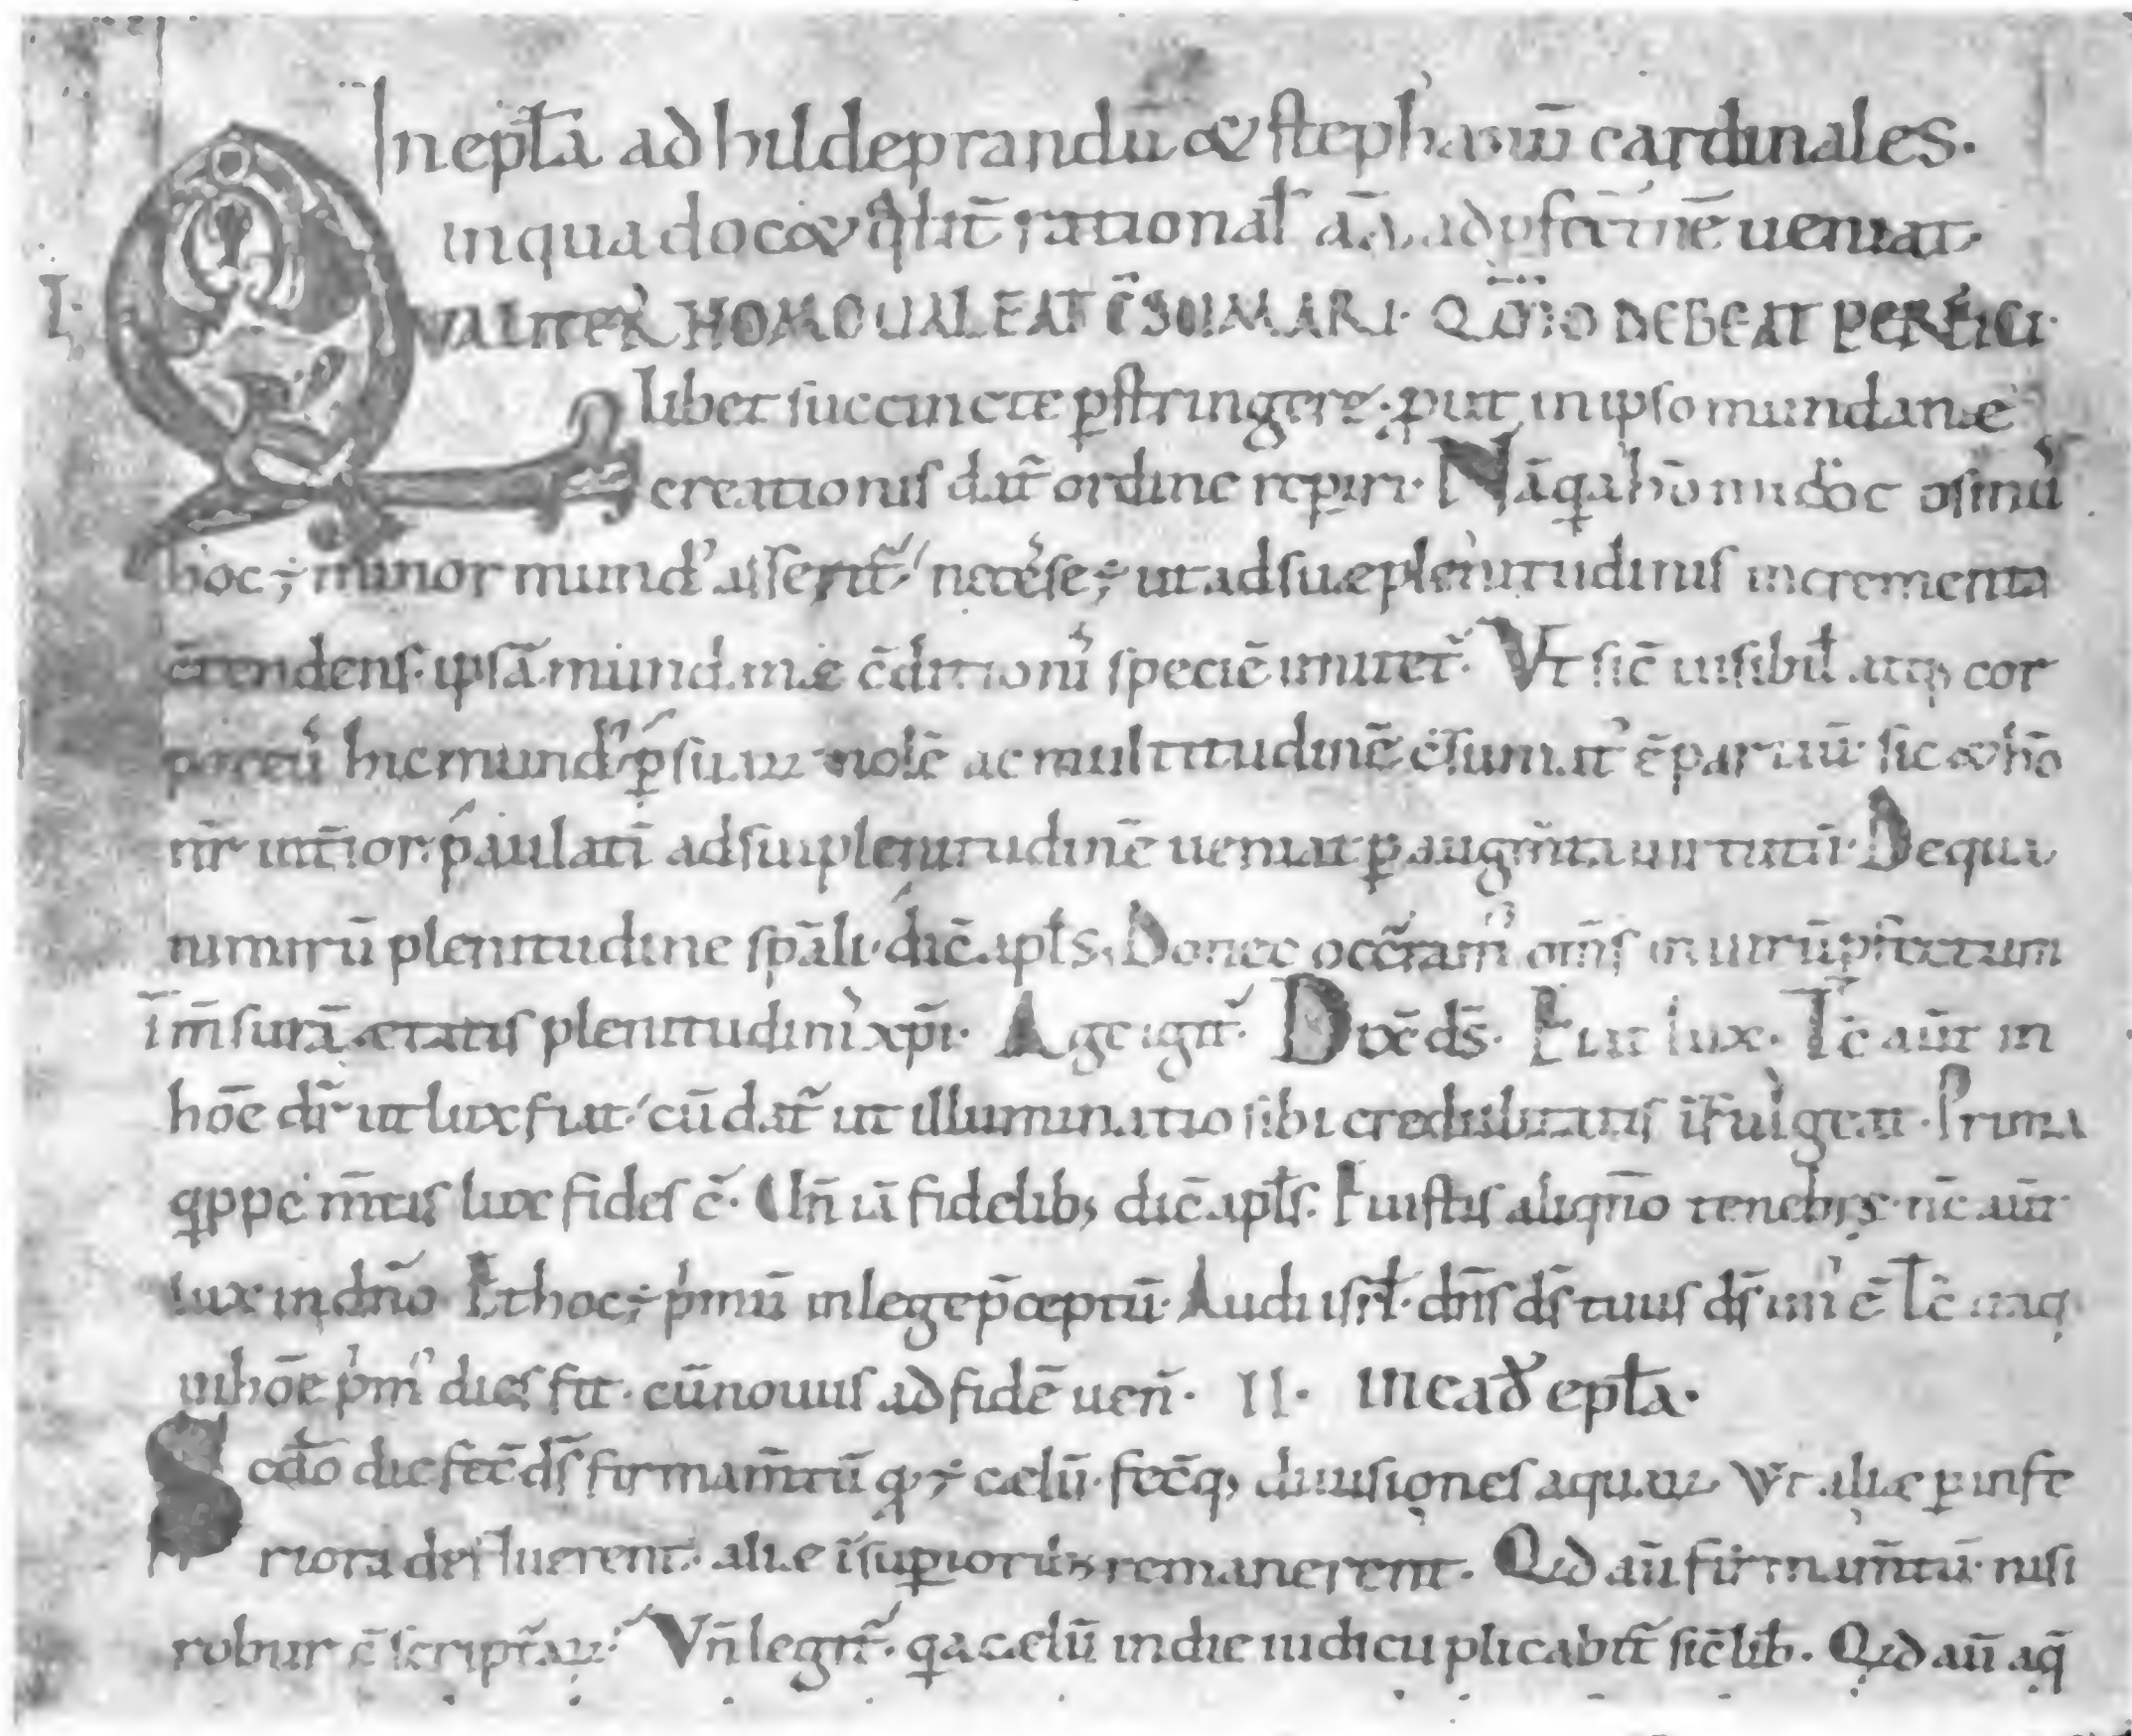 In epl̃a ad hildeprandū & stephanū cardinales.
in qua doc& q̃lit̃ rational̃ ad ueniat
I. QUALITER HOMO UALEAT C̄SUMARI. QŌM̄O DEBEAT PERFICI.
liber succincte ꝑstringere, prout in ipso mundanæ
creationis dat̃ ordine reperiri. Nā q̇a hō mūdꝰ
hoc ÷ minor mundꝰ asserit̃ necesse ÷ ut ad suæ plenitudinis incrementa
c̄tendens. ipsā mundanæ c̄ditionis speciē imitet̃. Vt sic̄ uisibil̃ atq; cor
poreꝰ hic mundꝰ ꝑ suaꝝ molē ac multitudinē ē paruū. sic & hō
nr̄ int̃ior paulatī ad sui plenitudinē ueniat ꝑ augm̃ta uirtutū. De qua
nimirū plenitudine spāli. dic̄ apl̃s. Donec occ̄ram omñs in uirū ꝑfectum
ī m̄surā ætatis plenitudinis xp̄i. Age igit̃. Dix̄ ds̄. Fiat lux. Tc̄ aūt in
hōe dr̃ ut lux fiat. cū dat̃ ut illuminatio sibi credulitatis īfulgeat. Prima
qͥppe m̄tis lux fides ē. Un̄ fidelib; dic̄ apl̃s. Fuistis aliqñdo tenebrę. nc̄ aūt
lux in dn̄o. Et hoc ÷ pͥmū in lege p̄ceptū. Audi isrl̃. dñs ds̄ tuus ds̄ unꝰ ē. Tc̄ itaq;
in hōe pͥmꝰ dies fit. cū nouus ad fidē uen̄. II. In eadē epl̃a.
Scd̄o die fec̄ ds̄ firmam̄tū qͦ ÷ cælū. fec̄q; diuisiones aquaꝝ. Vt aliæ ꝑ infe
riora defluerent. aliæ ī supioribꝰ remanerent. Qͥd aū firmam̄tū. nisi
robur ē scripturaꝝ. Vn̄ legit̃. qͥa cælū in die iudicii plicabit̃ sic̄ lib̃. Qͥd aū aq̃